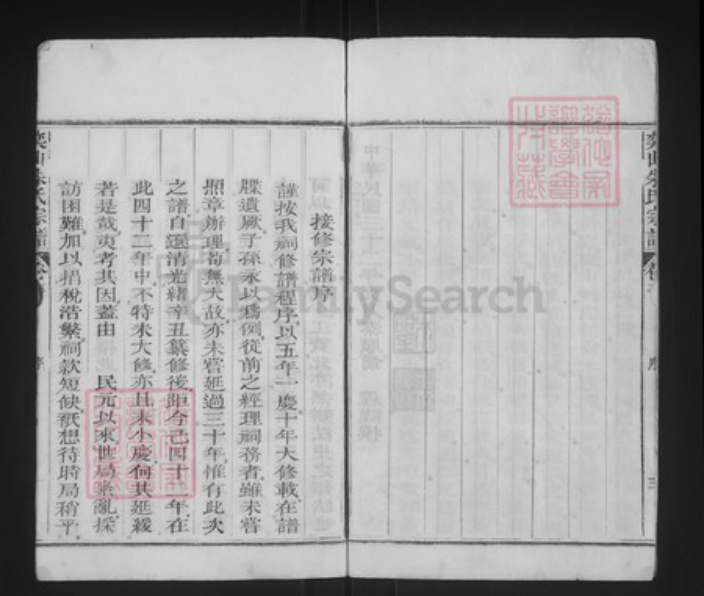 接修宗譜序
謹按我祠修譜程序以五年一慶十年大修載在譜
牒遺厥子孫永以為例從前之經理祠務者雖未嘗
照章辦理苟無大故亦未嘗延過三十年惟有此次
之譜自遜清光緒辛丑纂修後距今已四十二年在
此四十二年中不特未大修亦且未小慶何其延緩
若是哉夷考其因蓋由　民元以來世局紊亂採
訪困難加以捐稅浩繁祠款短缺祇想待時局稍平
朱氏宗譜
序
三
中華民國三十二年
FamilySearch